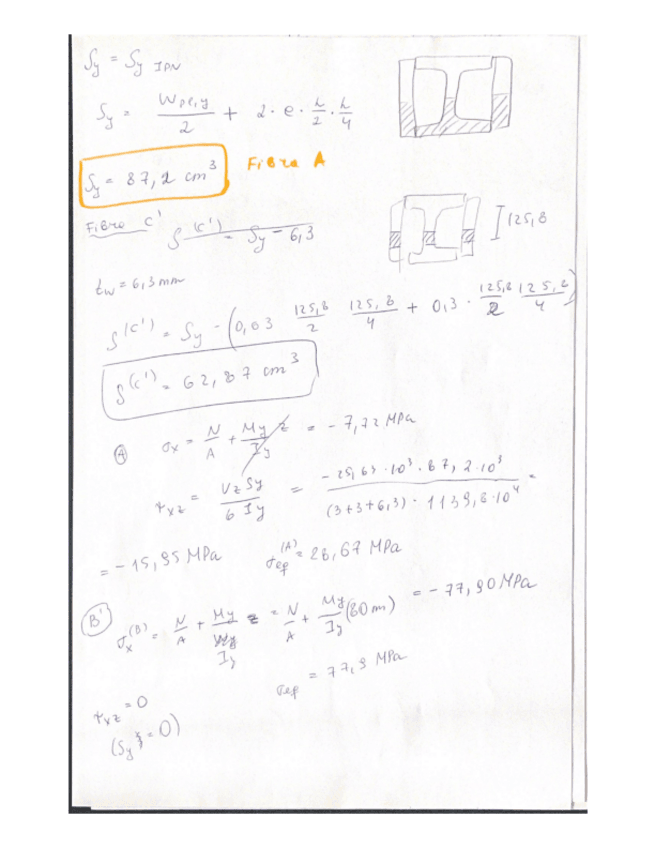 Sy = Sy IPN
Sy = Wpl,y / 2 + 2 · e · h/2 · h/4
Sy = 87,2 cm³ Fibra A
Fibra C' S(c') = Sy - 6,3
125,8
tw = 6,3 mm
S(c') = Sy - (0,63 125,8/2 125,8/4 + 0,3 · 125,8/2 125,8/4)
S(c') = 62,87 cm³
A σx = N/A + My/Iy z = - 7,72 MPa
τxz = Vz Sy / b Iy = -25,63 · 10³ · 87,2 · 10³ / (3+3+6,3) · 1139,8 · 10⁴ =
= - 15,95 MPa σep(A) = 28,67 MPa
B' σx(B) = N/A + My/Iy z = N/A + My/Iy (80 m) = - 77,90 MPa
σep = 77,9 MPa
τxz = 0
(Sy = 0)